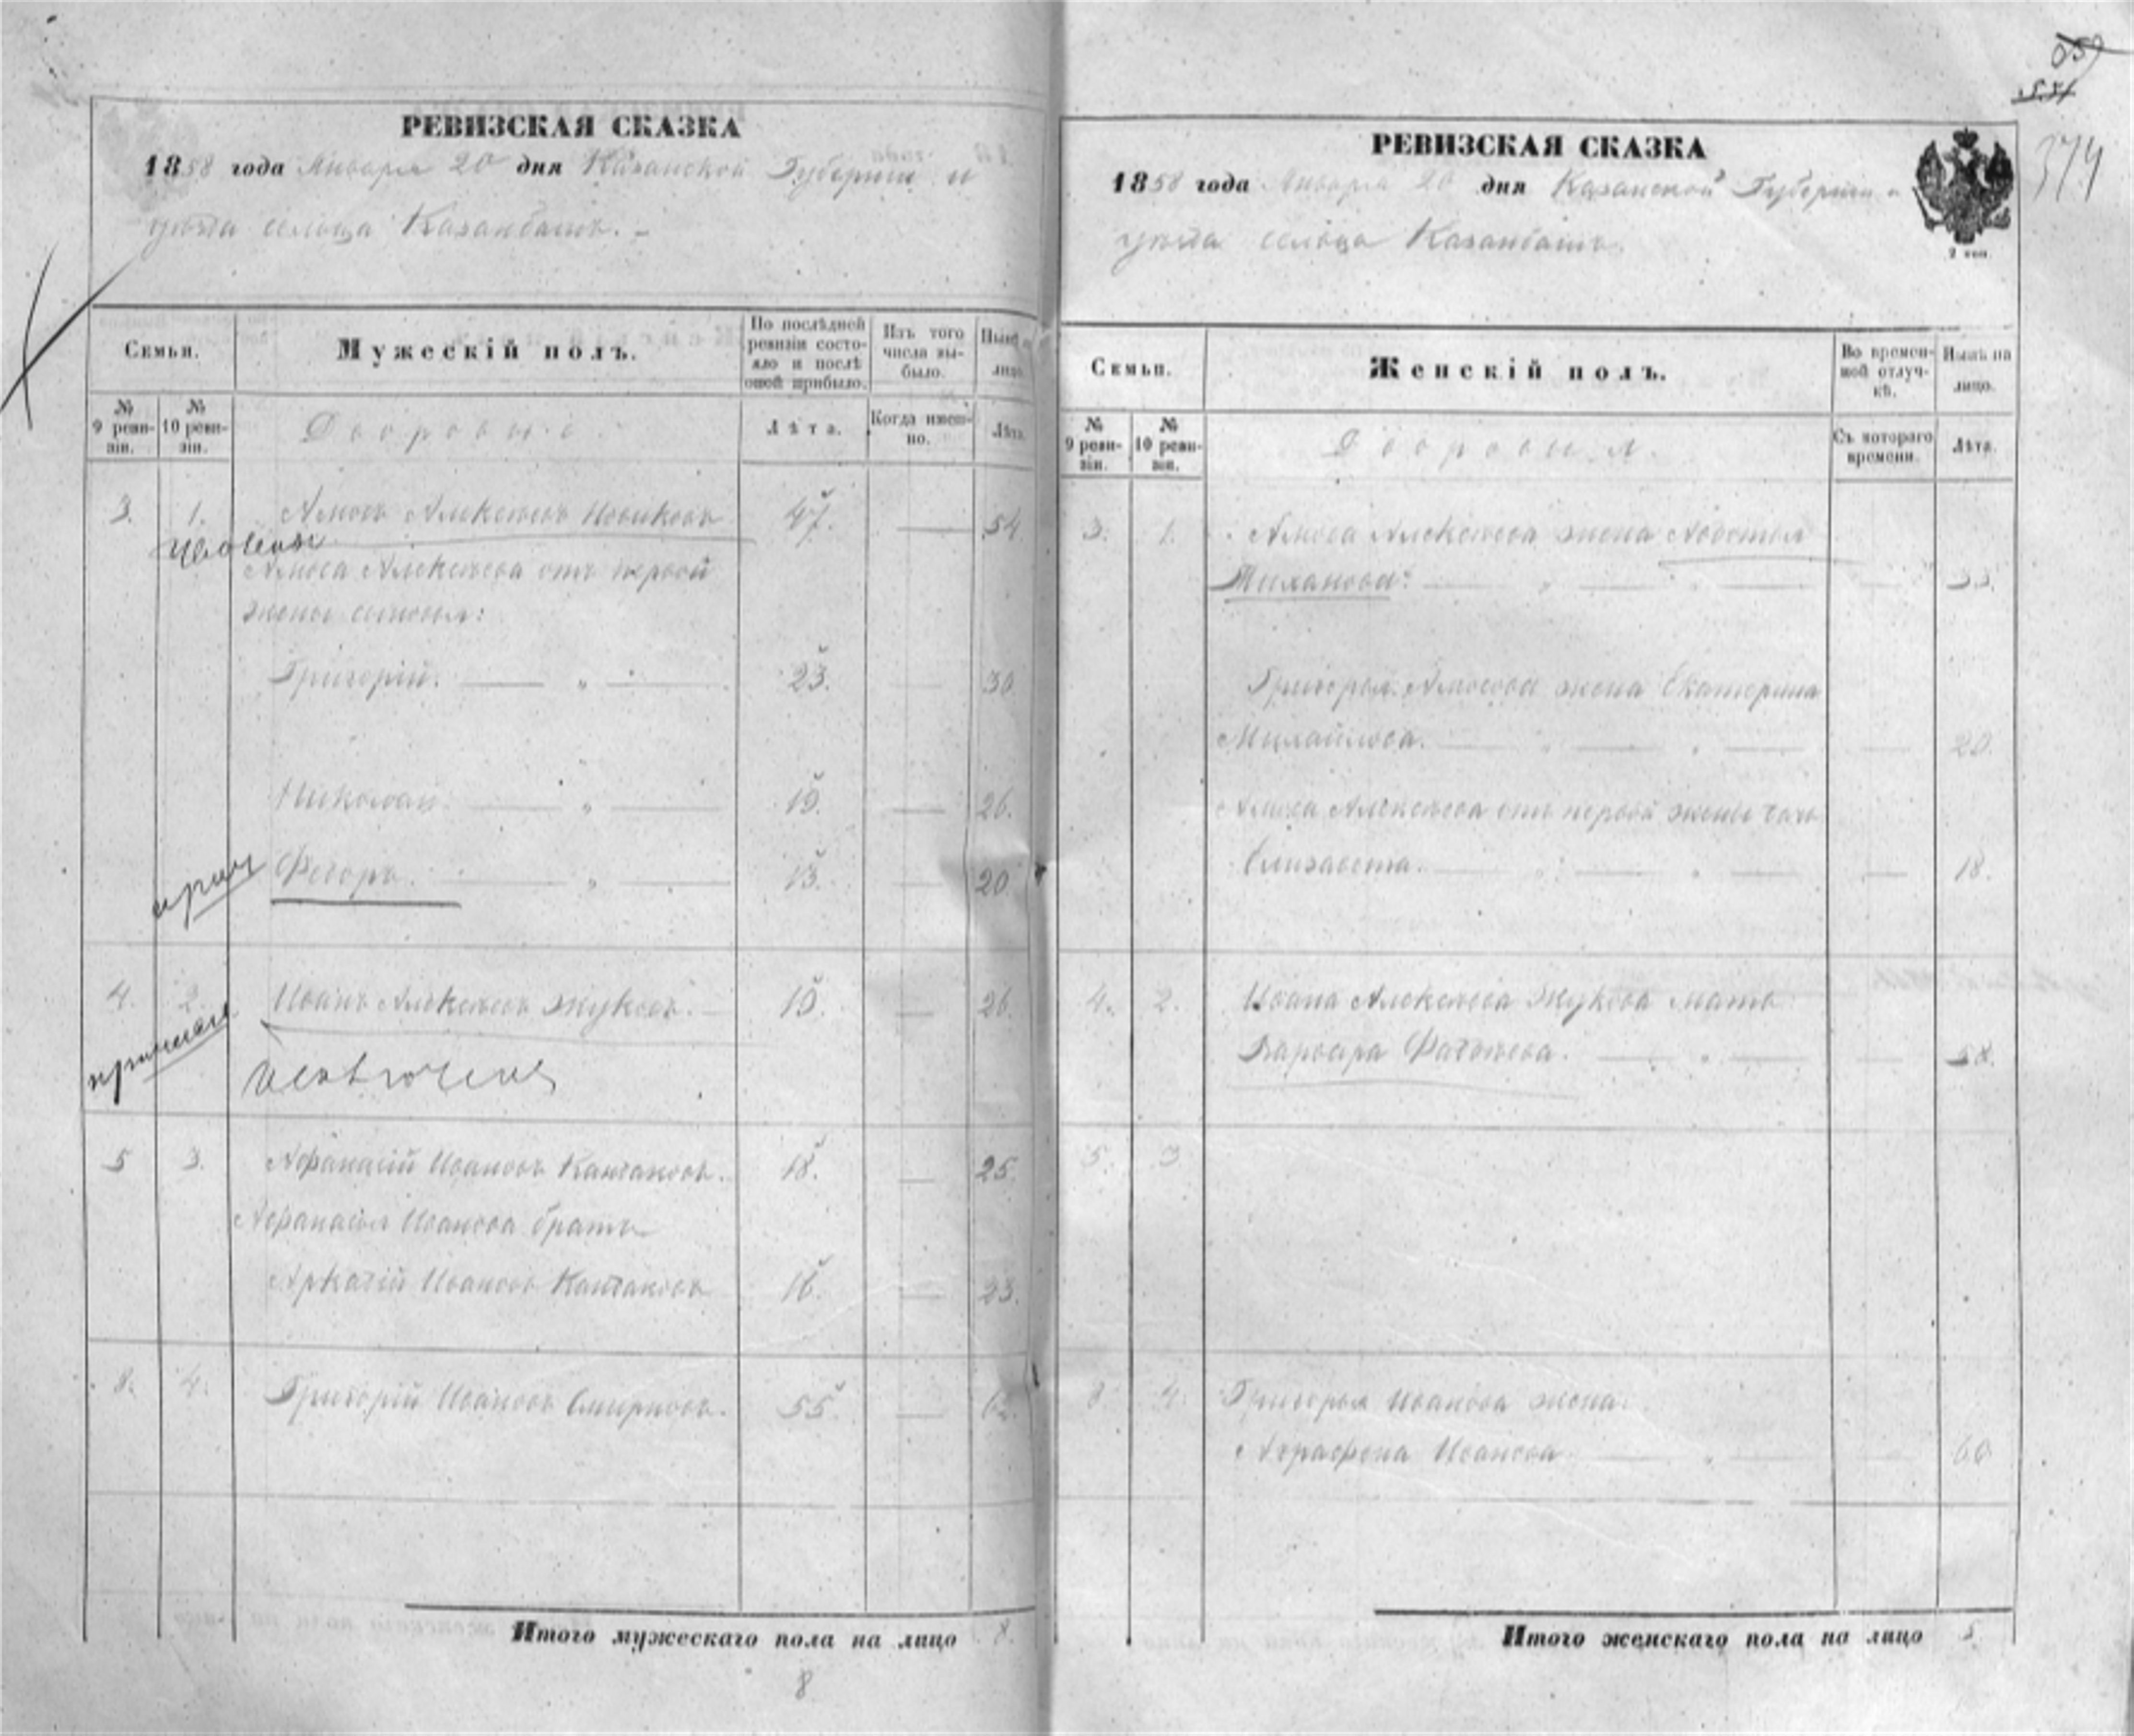 РЕВИЗСКАЯ СКАЗКА
1858 года Января 20 дня Казанской Губернии и
уѣзда сельца Казанбашъ.
Семьи.
Мужескій полъ.
По послѣдней ревизіи состояло и послѣ оной прибыло.
Изъ того числа выбыло.
Нынѣ на лицо.
№ 9 ревизіи.
№ 10 ревизіи.
Дворовые.
Лѣта.
Когда именно.
Лѣта.
3. 1. Амосъ Алексѣевъ Новиковъ 47. — 54
Амоса Алексѣева отъ первой
жены сыновья:
Григорій. — " — 23. — 30
Николай. — " — 19. — 26.
Федоръ. — " — 13. — 20
4. 2. Иванъ Алексѣевъ Жуковъ. — 19. — 26.
5 3. Афанасій Ивановъ 18. — 25.
Афанасья Иванова братъ
Аркадій Ивановъ 16. — 23.
8. 4. Григорій Ивановъ Смирновъ. 55. — 62.
Итого мужескаго пола на лицо 8.
8
374
РЕВИЗСКАЯ СКАЗКА
1858 года Января 20 дня Казанской Губерніи и
уѣзда сельца Казанбашъ.
2 коп.
Семьи.
Женскій полъ.
Во временной отлучкѣ.
Нынѣ на лицо.
№ 9 ревизіи.
№ 10 ревизіи.
Дворовыя.
Съ котораго времени.
Лѣта.
3. 1. Амоса Алексѣева жена Авдотья
— " — " — 33.
Григорья Амосова жена Екатерина
Михайлова. — " — " — 20.
Амоса Алексѣева отъ первой жены дочь
Елизавета. — " — " — 18.
4. 2. Ивана Алексѣева Жукова мать
Варвара Фадѣева. — " — 58.
5. 3
8 4. Григорья Иванова жена
Аграфена Иванова — " — 60
Итого женскаго пола на лицо 5